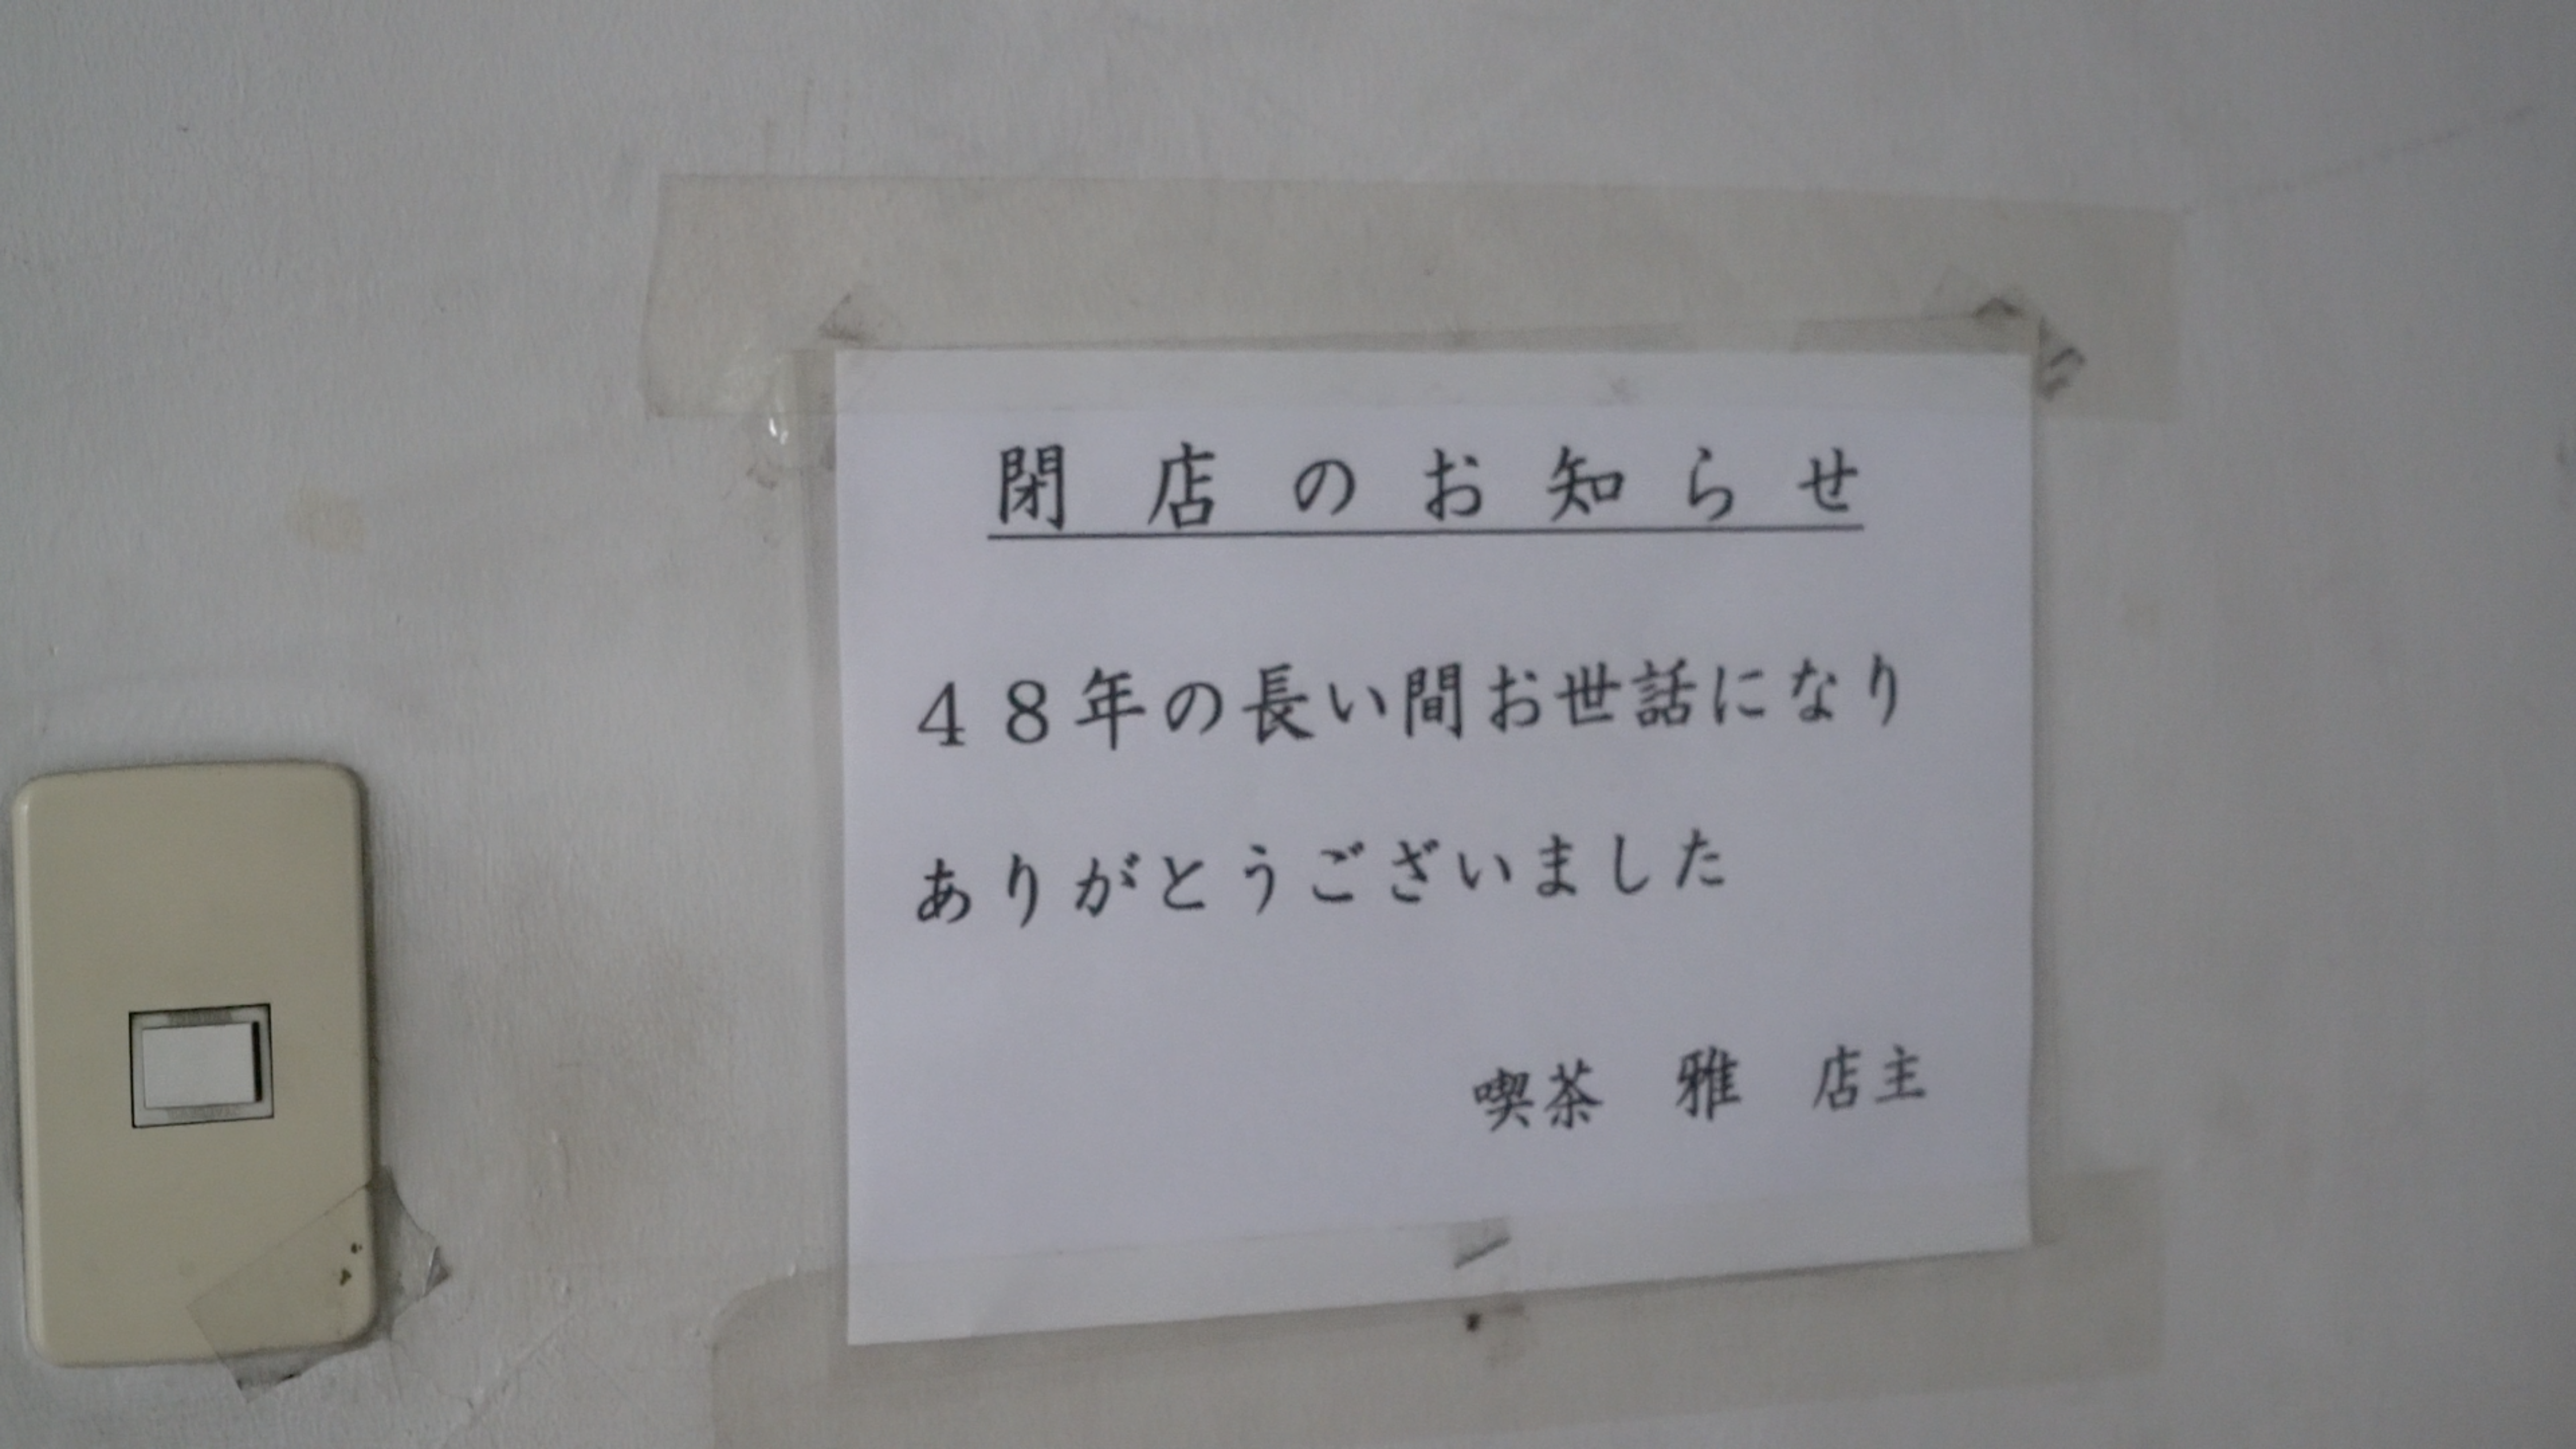 閉店のお知らせ
４８年の長い間お世話になり
ありがとうございました
喫茶　雅　店主